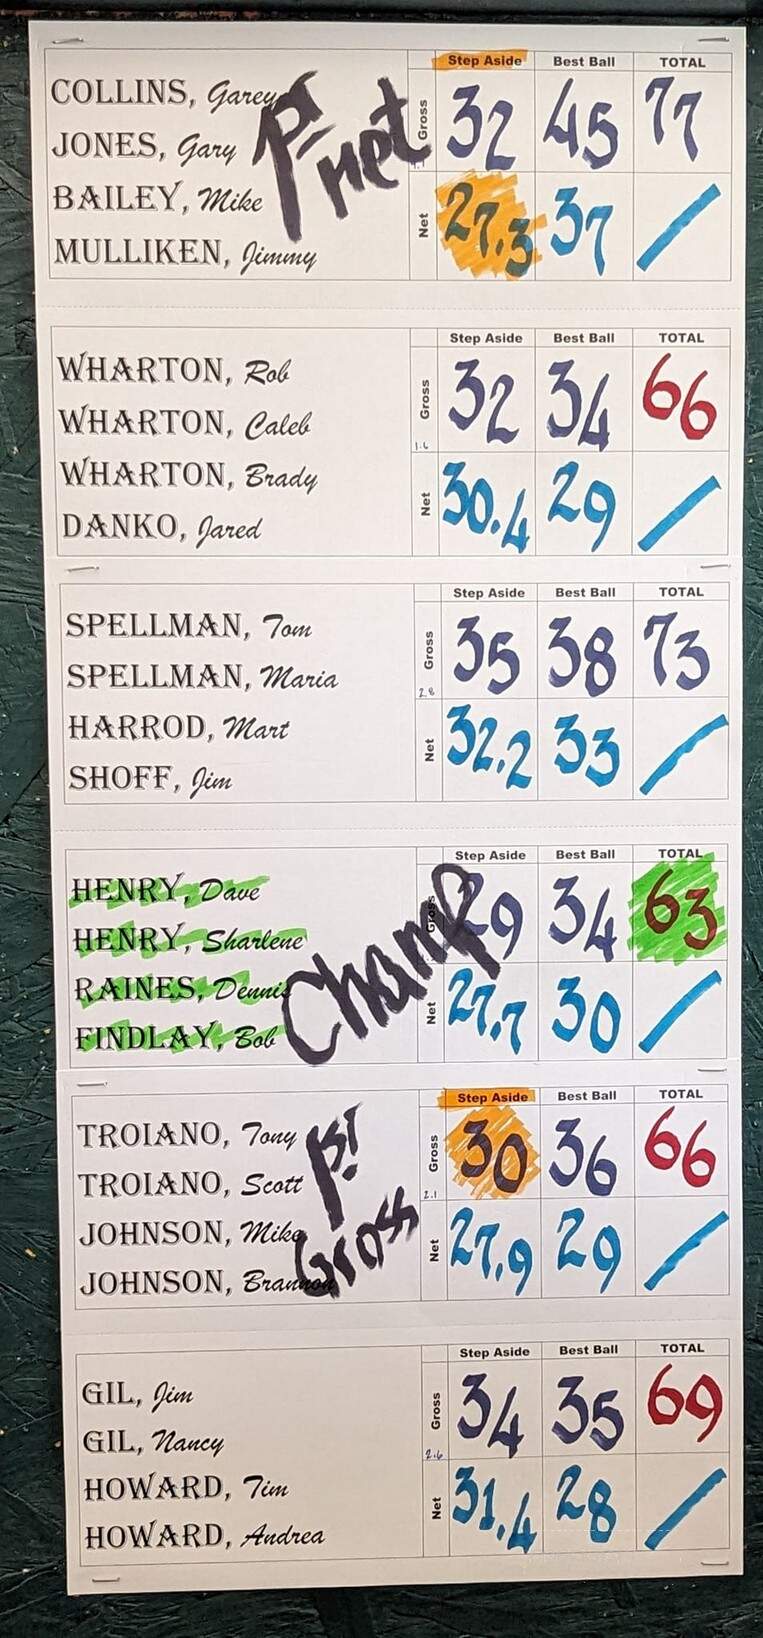 Step Aside Best Ball TOTAL
COLLINS, Garey
JONES, Gary
BAILEY, Mike
MULLIKEN, Jimmy
1st
net
Gross 32 45 77
Net 27.3 37 /
Step Aside Best Ball TOTAL
WHARTON, Rob
WHARTON, Caleb
WHARTON, Brady
DANKO, Jared
Gross 32 34 66
1.6
Net 30.4 29 /
Step Aside Best Ball TOTAL
SPELLMAN, Tom
SPELLMAN, Maria
HARROD, Mart
SHOFF, Jim
Gross 35 38 73
2.8
Net 32.2 33 /
Step Aside Best Ball TOTAL
HENRY, Dave
HENRY, Sharlene
RAINES, Dennis
FINDLAY, Bob
Champ
Gross 29 34 63
Net 27.7 30 /
Step Aside Best Ball TOTAL
TROIANO, Tony
TROIANO, Scott
JOHNSON, Mike
JOHNSON, Brannon
1st
Gross
Gross 30 36 66
2.1
Net 27.9 29 /
Step Aside Best Ball TOTAL
GIL, Jim
GIL, Nancy
HOWARD, Tim
HOWARD, Andrea
Gross 34 35 69
2.6
Net 31.4 28 /